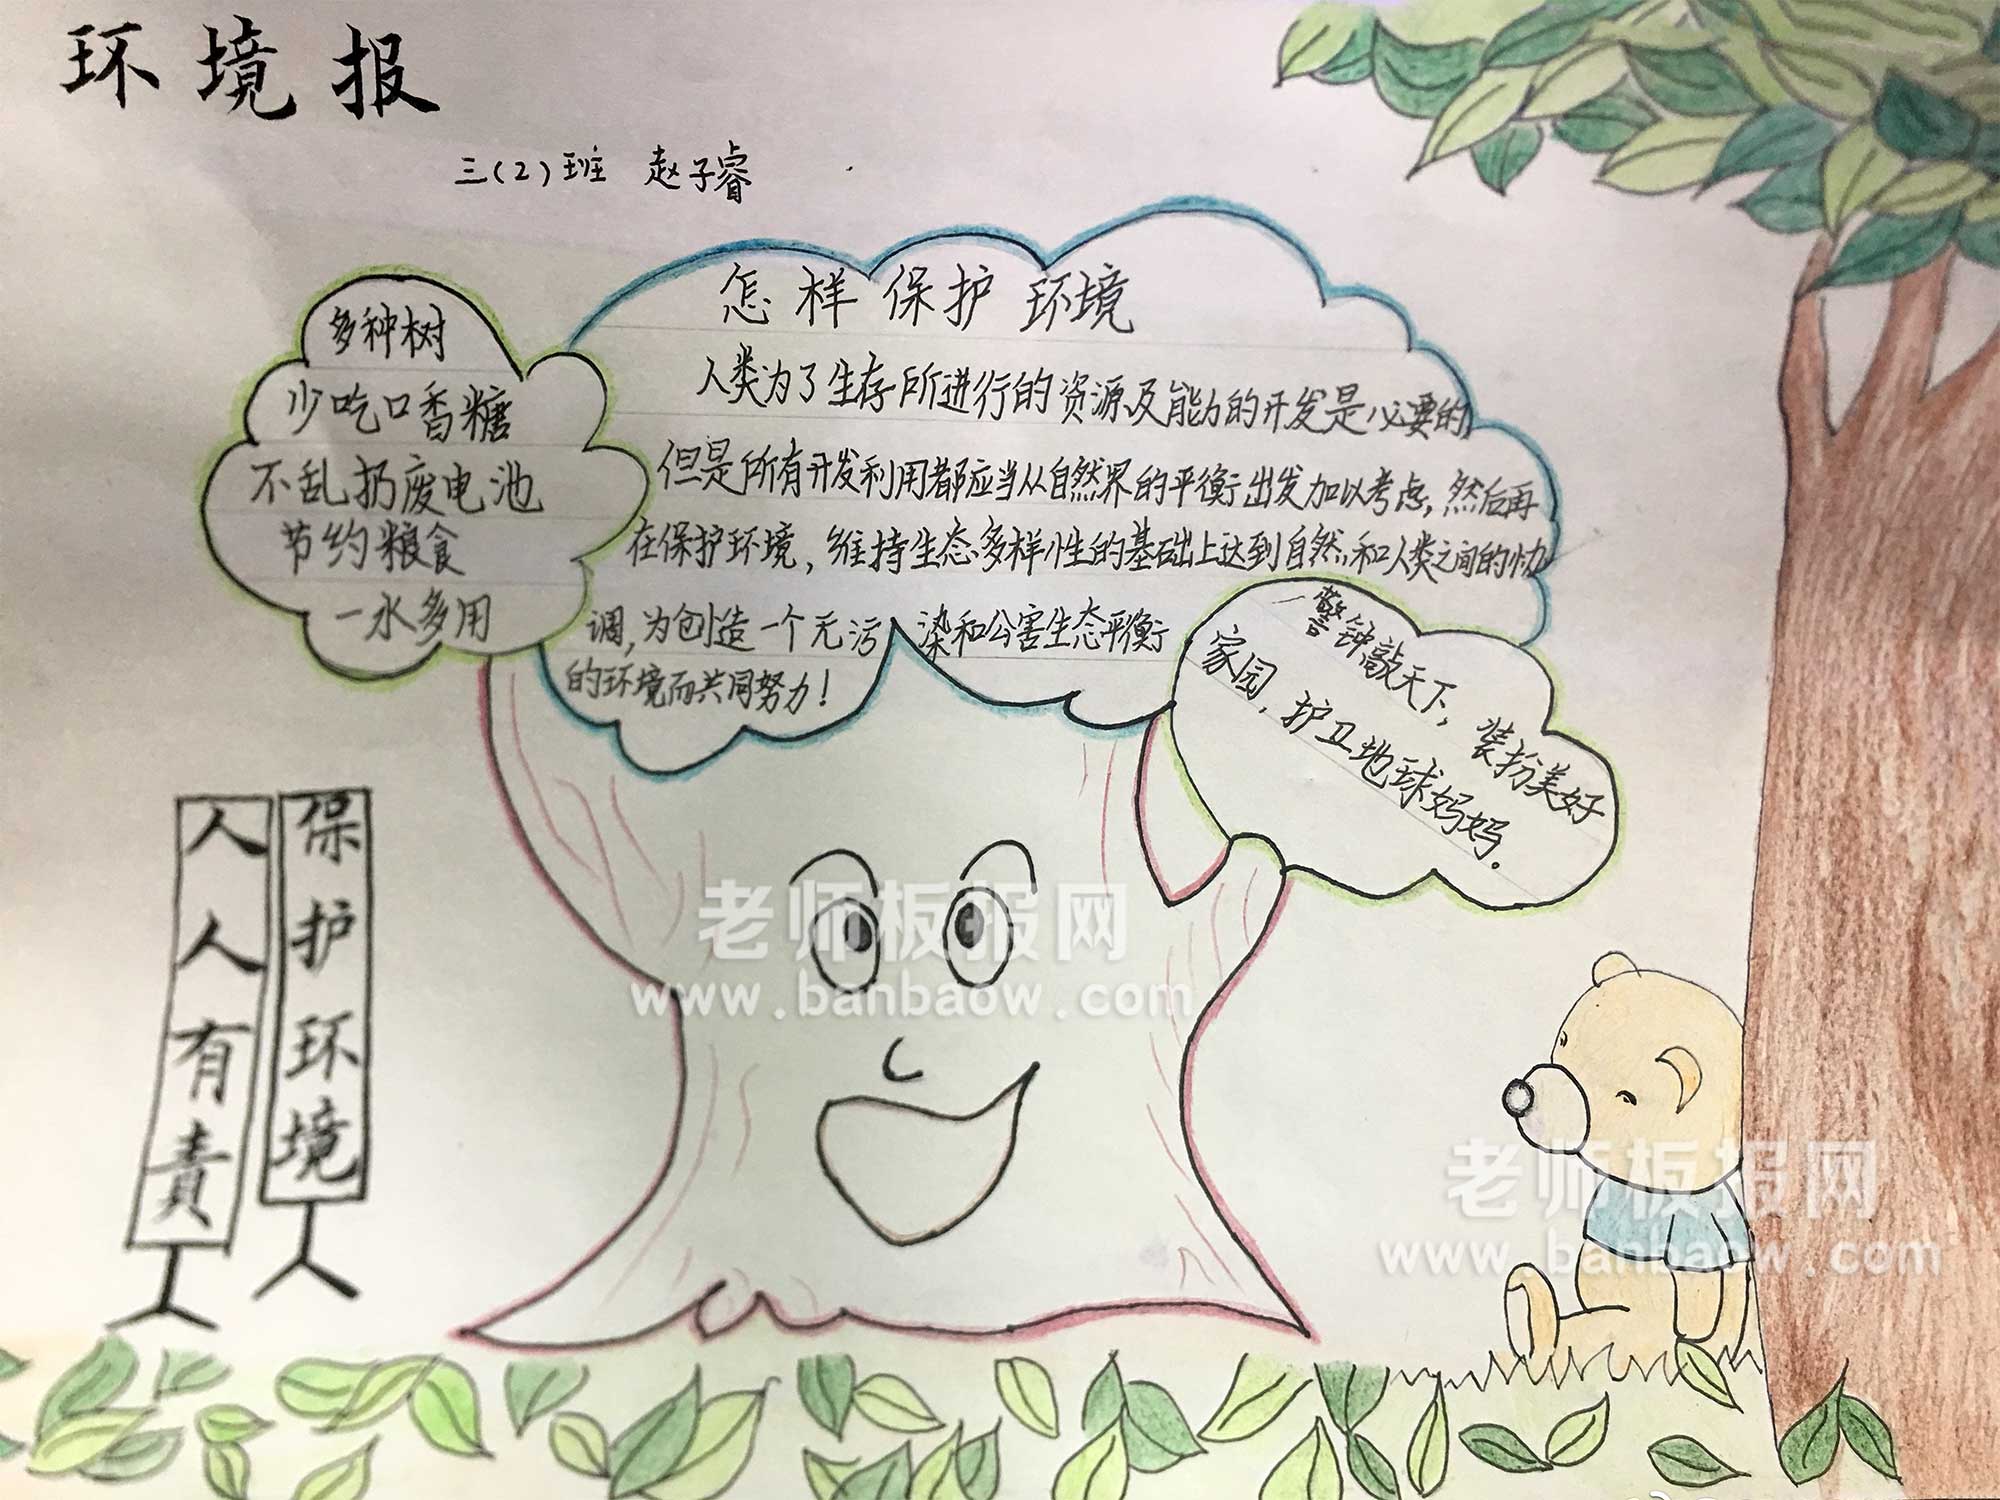 环境报
三(2)班 赵子睿
怎样保护环境
人类为了生存所进行的资源及能力的开发是必要的,
但是所有开发利用都应当从自然界的平衡出发加以考虑,然后再
在保护环境,维持生态多样性的基础上达到自然和人类之间的协
调,为创造一个无污染和公害生态平衡
的环境而共同努力!
多种树
少吃口香糖
不乱扔废电池
节约粮食
一水多用
警钟敲天下,装扮美好
家园,护卫地球妈妈。
保护环境
人人有責
老师板报网
www.banbaow.com
老师板报网
www.banbaow.com